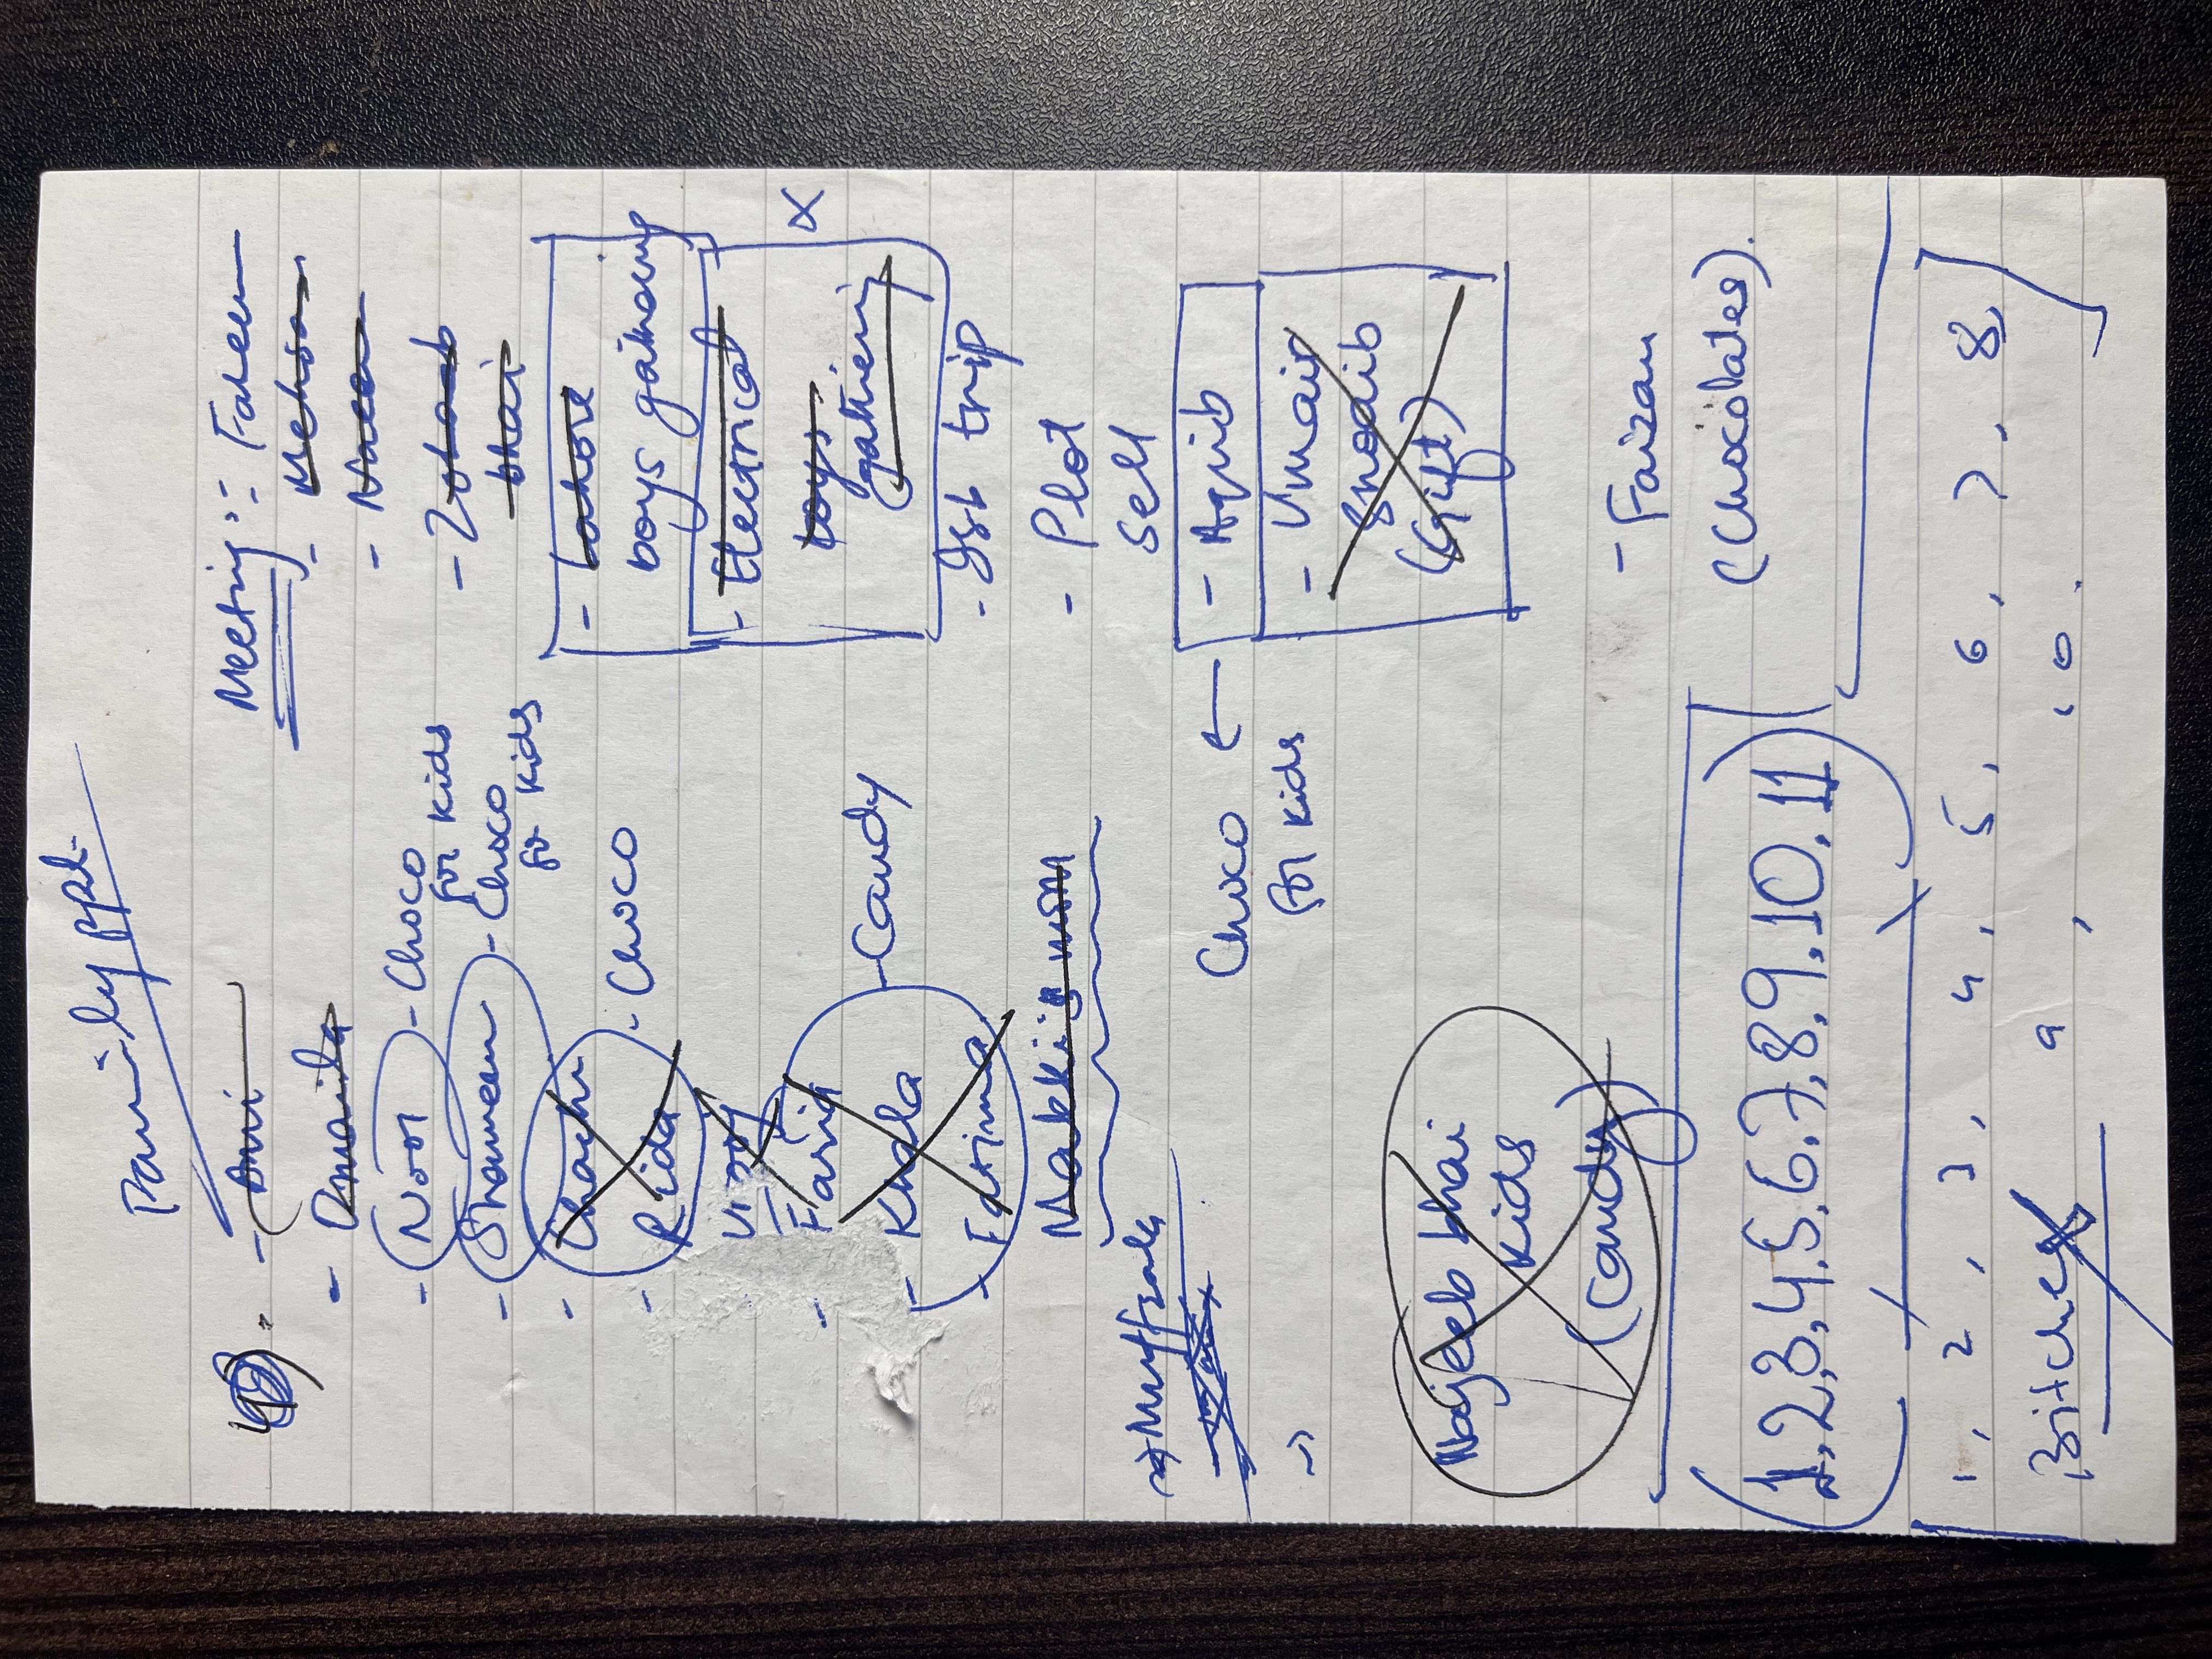 Family ppl.
- Ami
- Amaila
- Noor - Choco for kids
- Shameen - Choco for kids
- Chachi
- Rida - Choco
Faria
- Khala - Candy
- Farima
Choco for kids
Najeeb bhai
kids
(candy)
Meeting :- Faheem
- Mehran
-
- Zohaeb
bhai
- Lahore
boys gathering
- Electrical X
boys
gathering
- Isb trip
- Plot
sell
- Aqib ->
- Umair
Shoaib
(Gift)
- Faizan
(Chocolates).
(1,2,3,4,5,6,7,8,9,10,11)
1, 2, 3, 4, 5, 6, 7, 8,
Bitches 9, 10.